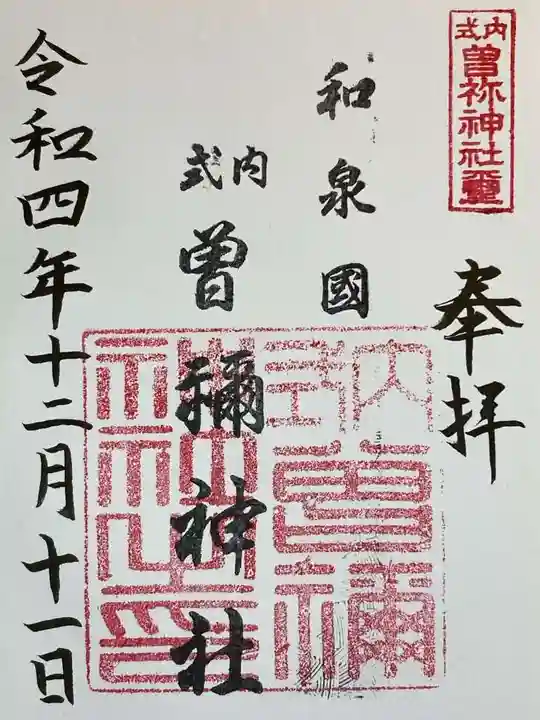 式内
曽祢神社璽
奉拝
和泉國
式内
曽禰神社
式内
曽禰
神社之印
令和四年十二月十一日